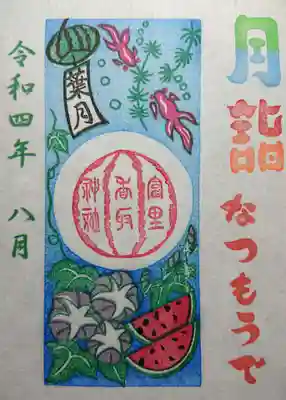 月詣なつもうで
葉月
富里
香取
神社
令和四年 八月